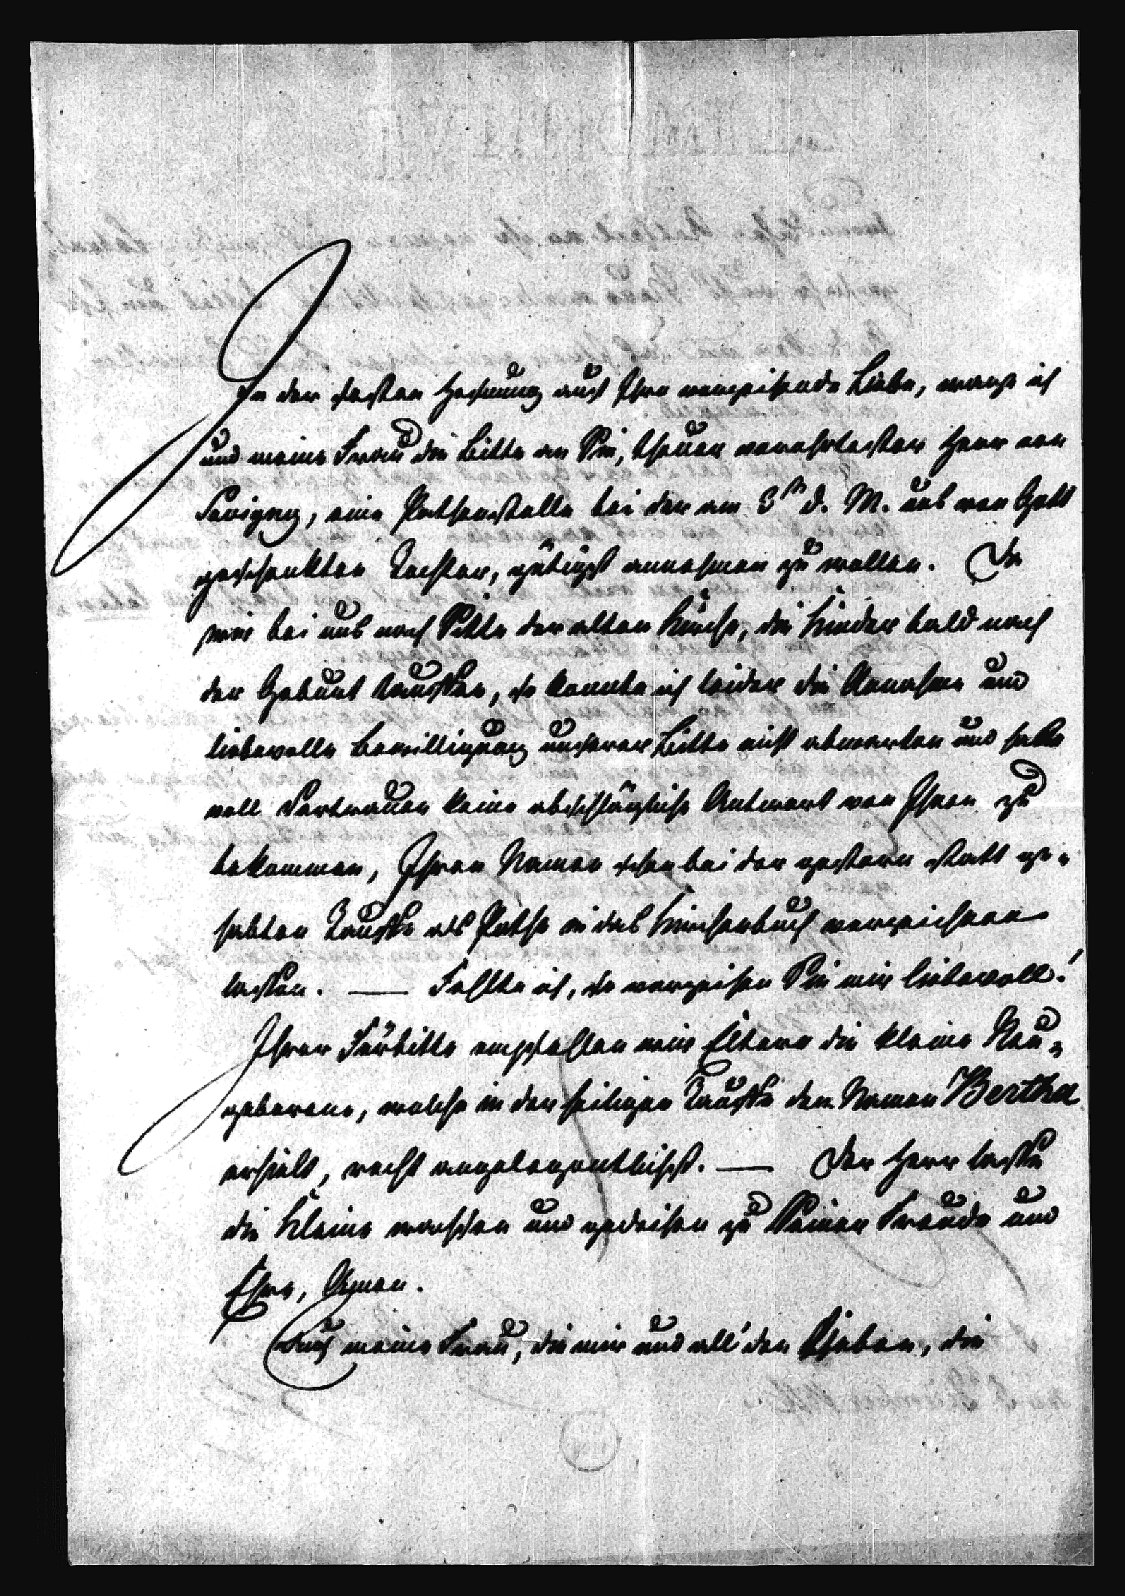 In der festen Hoffnung auf Ihre verzeihende Liebe, wage ich
und meine Frau die Bitte an Sie, theurer verehrtester Herr von
Savigny, eine Pathenstelle bei der am 3ten d. M. uns von Gott
geschenkten Tochter, gütigst annehmen zu wollen. Da
wir bei uns nach Sitte der alten Kirche, die Kinder bald nach
der Geburt tauffen, so konnte ich leider die Annahme und
liebevolle Bewilligung unserer Bitte nicht abwarten und habe
voll Vertrauen keine abschlägliche Antwort von Ihnen zu
bekommen, Ihren Namen schon bei der gestern statt ge-
habten Tauffe als Pathe in das Kirchenbuch verzeichnen
lassen. — Fehlte ich, so verzeihen Sie mir liebevoll!
Ihrer Fürbitte empfehlen wir Eltern die kleine Neu-
geborene, welche in der heiligen Tauffe den Namen Bertha
erhielt, recht angelegentlichst. — Der Herr lasse
die Kleine wachsen und gedeihen zu Seiner Freude und
Ehre, Amen.
Auch meine Frau, die mir und all' den Lieben, die